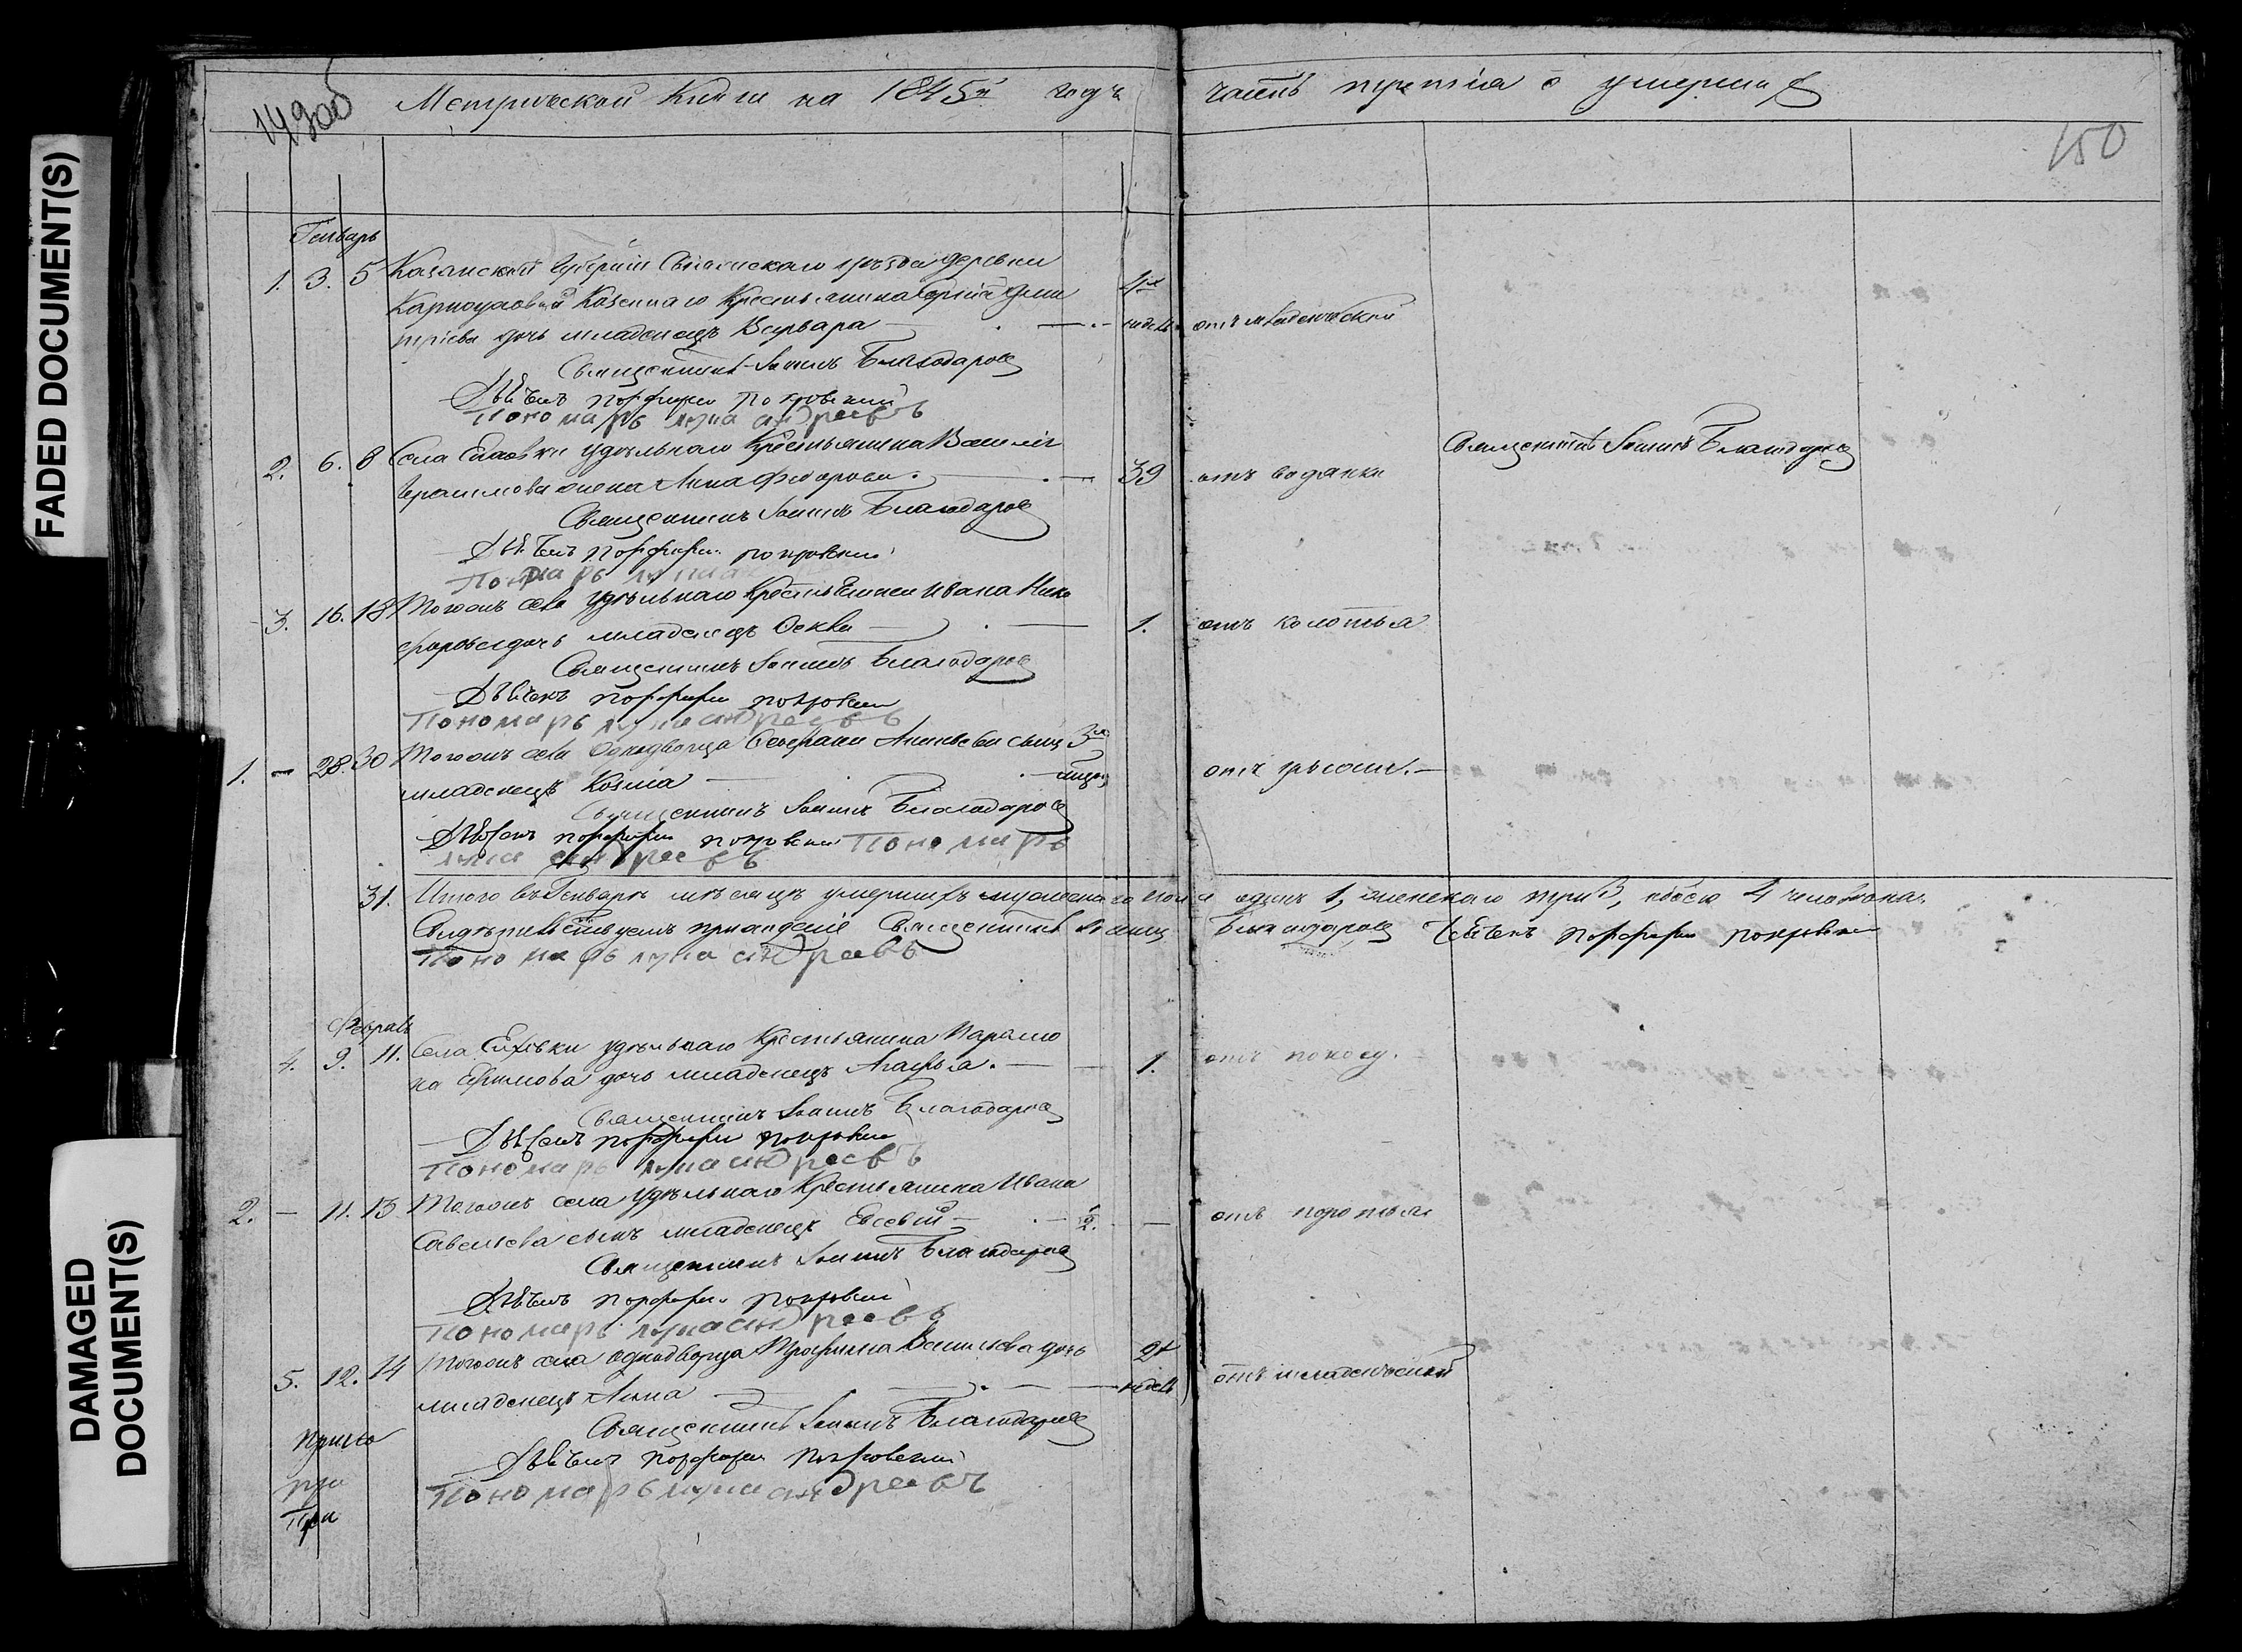 FADED DOCUMENT(S)
DAMAGED DOCUMENT(S)
149 об
Метрической Книги на 1845й годъ часть третiя о умершихъ
150
Генварь
1. 3. 5 Казанской Губернiи уѣзда деревни
Казеннаго Крестьянина Сергiя Дми
трiева дочь младенецъ Варвара недѣль отъ младенческой
Священникъ Iоаннъ Благодаровъ
Дьячекъ Порфирiй Покровскiй
Пономарь Лука Андреевъ
2. 6. 8 Села Елховки удѣльнаго Крестьянина Василiя
Герасимова жена Анна Федорова 39 отъ водянки
Священникъ Iоаннъ Благодаровъ
Священникъ Iоаннъ Благодаровъ
Дьячекъ Порфирiй Покровскiй
Пономарь Лука
3. 16. 18 Тогожъ села удѣльнаго Ивана Ники
форова дочь младенецъ Фекла 1. отъ колотья
Священникъ Iоаннъ Благодаровъ
Дьячекъ Порфирiй Покровскiй
Пономарь Лука Андреевъ
1. — 28. 30 Тогожъ села Однодворца Ананьева сынъ 3х
младенецъ Козма мѣсяц. отъ грыжи.
Священникъ Iоаннъ Благодаровъ
Дьячекъ Порфирiй Покровскiй Пономарь
Лука Андреевъ
31. Итого въ Генварѣ мѣсяцѣ умершихъ мужеска го пола одинъ 1, женскаго три 3, обоего 4 человѣка.
Священникъ Iоаннъ Благодаровъ Дьячекъ Порфирiй Покровскiй
Пономарь Лука Андреевъ
Февраль
4. 9. 11. Села Елховки удѣльнаго Крестьянина Парамо
на Ефимова дочь младенецъ Агафья. 1. отъ поносу.
Священникъ Iоаннъ Благодаровъ
Дьячекъ Порфирiй Покровскiй
Пономарь Лука Андреевъ
2. — 11. 13 Тогожъ села удѣльнаго Крестьянина Ивана
Савельева сынъ младенецъ Евсевiй 2. — отъ
Священникъ Iоаннъ Благодаровъ
Дьячекъ Порфирiй Покровскiй
Пономарь Лука Андреевъ
5. 12. 14 Тогожъ села однодворца Трофима Васильева дочь 2х
младенецъ Анна недѣль отъ младенческой
Священникъ Iоаннъ Благодаровъ
Дьячекъ Порфирiй Покровскiй
Пономарь Лука Андреевъ